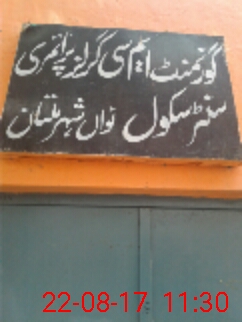 گورنمنٹ ایم سی گرلز پرائمری
سنٹر سکول نواں شہر ملتان
22-08-17 11:30